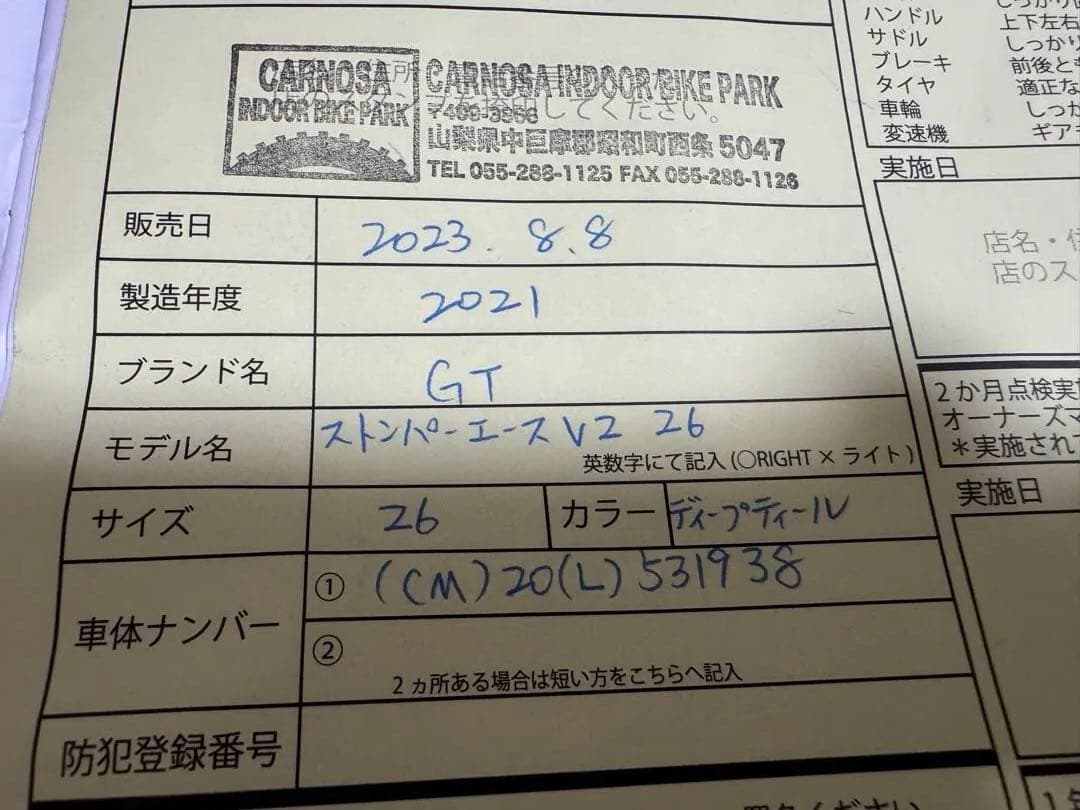 CARNOSA
INDOOR BIKE PARK
CARNOSA INDOOR BIKE PARK
〒409-3866
してください。
山梨県中巨摩郡昭和町西条 5047
TEL 055-288-1125 FAX 055-288-1126
販売日 2023. 8.8
製造年度 2021
ブランド名 GT
モデル名 ストンパーエースV2 26
英数字にて記入 (○RIGHT × ライト)
サイズ 26 カラー ディープティール
車体ナンバー ① (CM)20(L)531938
②
2ヵ所ある場合は短い方をこちらへ記入
防犯登録番号
ハンドル 上下左右
サドル しっかり
ブレーキ 前後と
タイヤ 適正な
車輪 しっか
変速機 ギア
実施日
店名・
店のス
2か月点検実
オーナーズマ
＊実施され
実施日